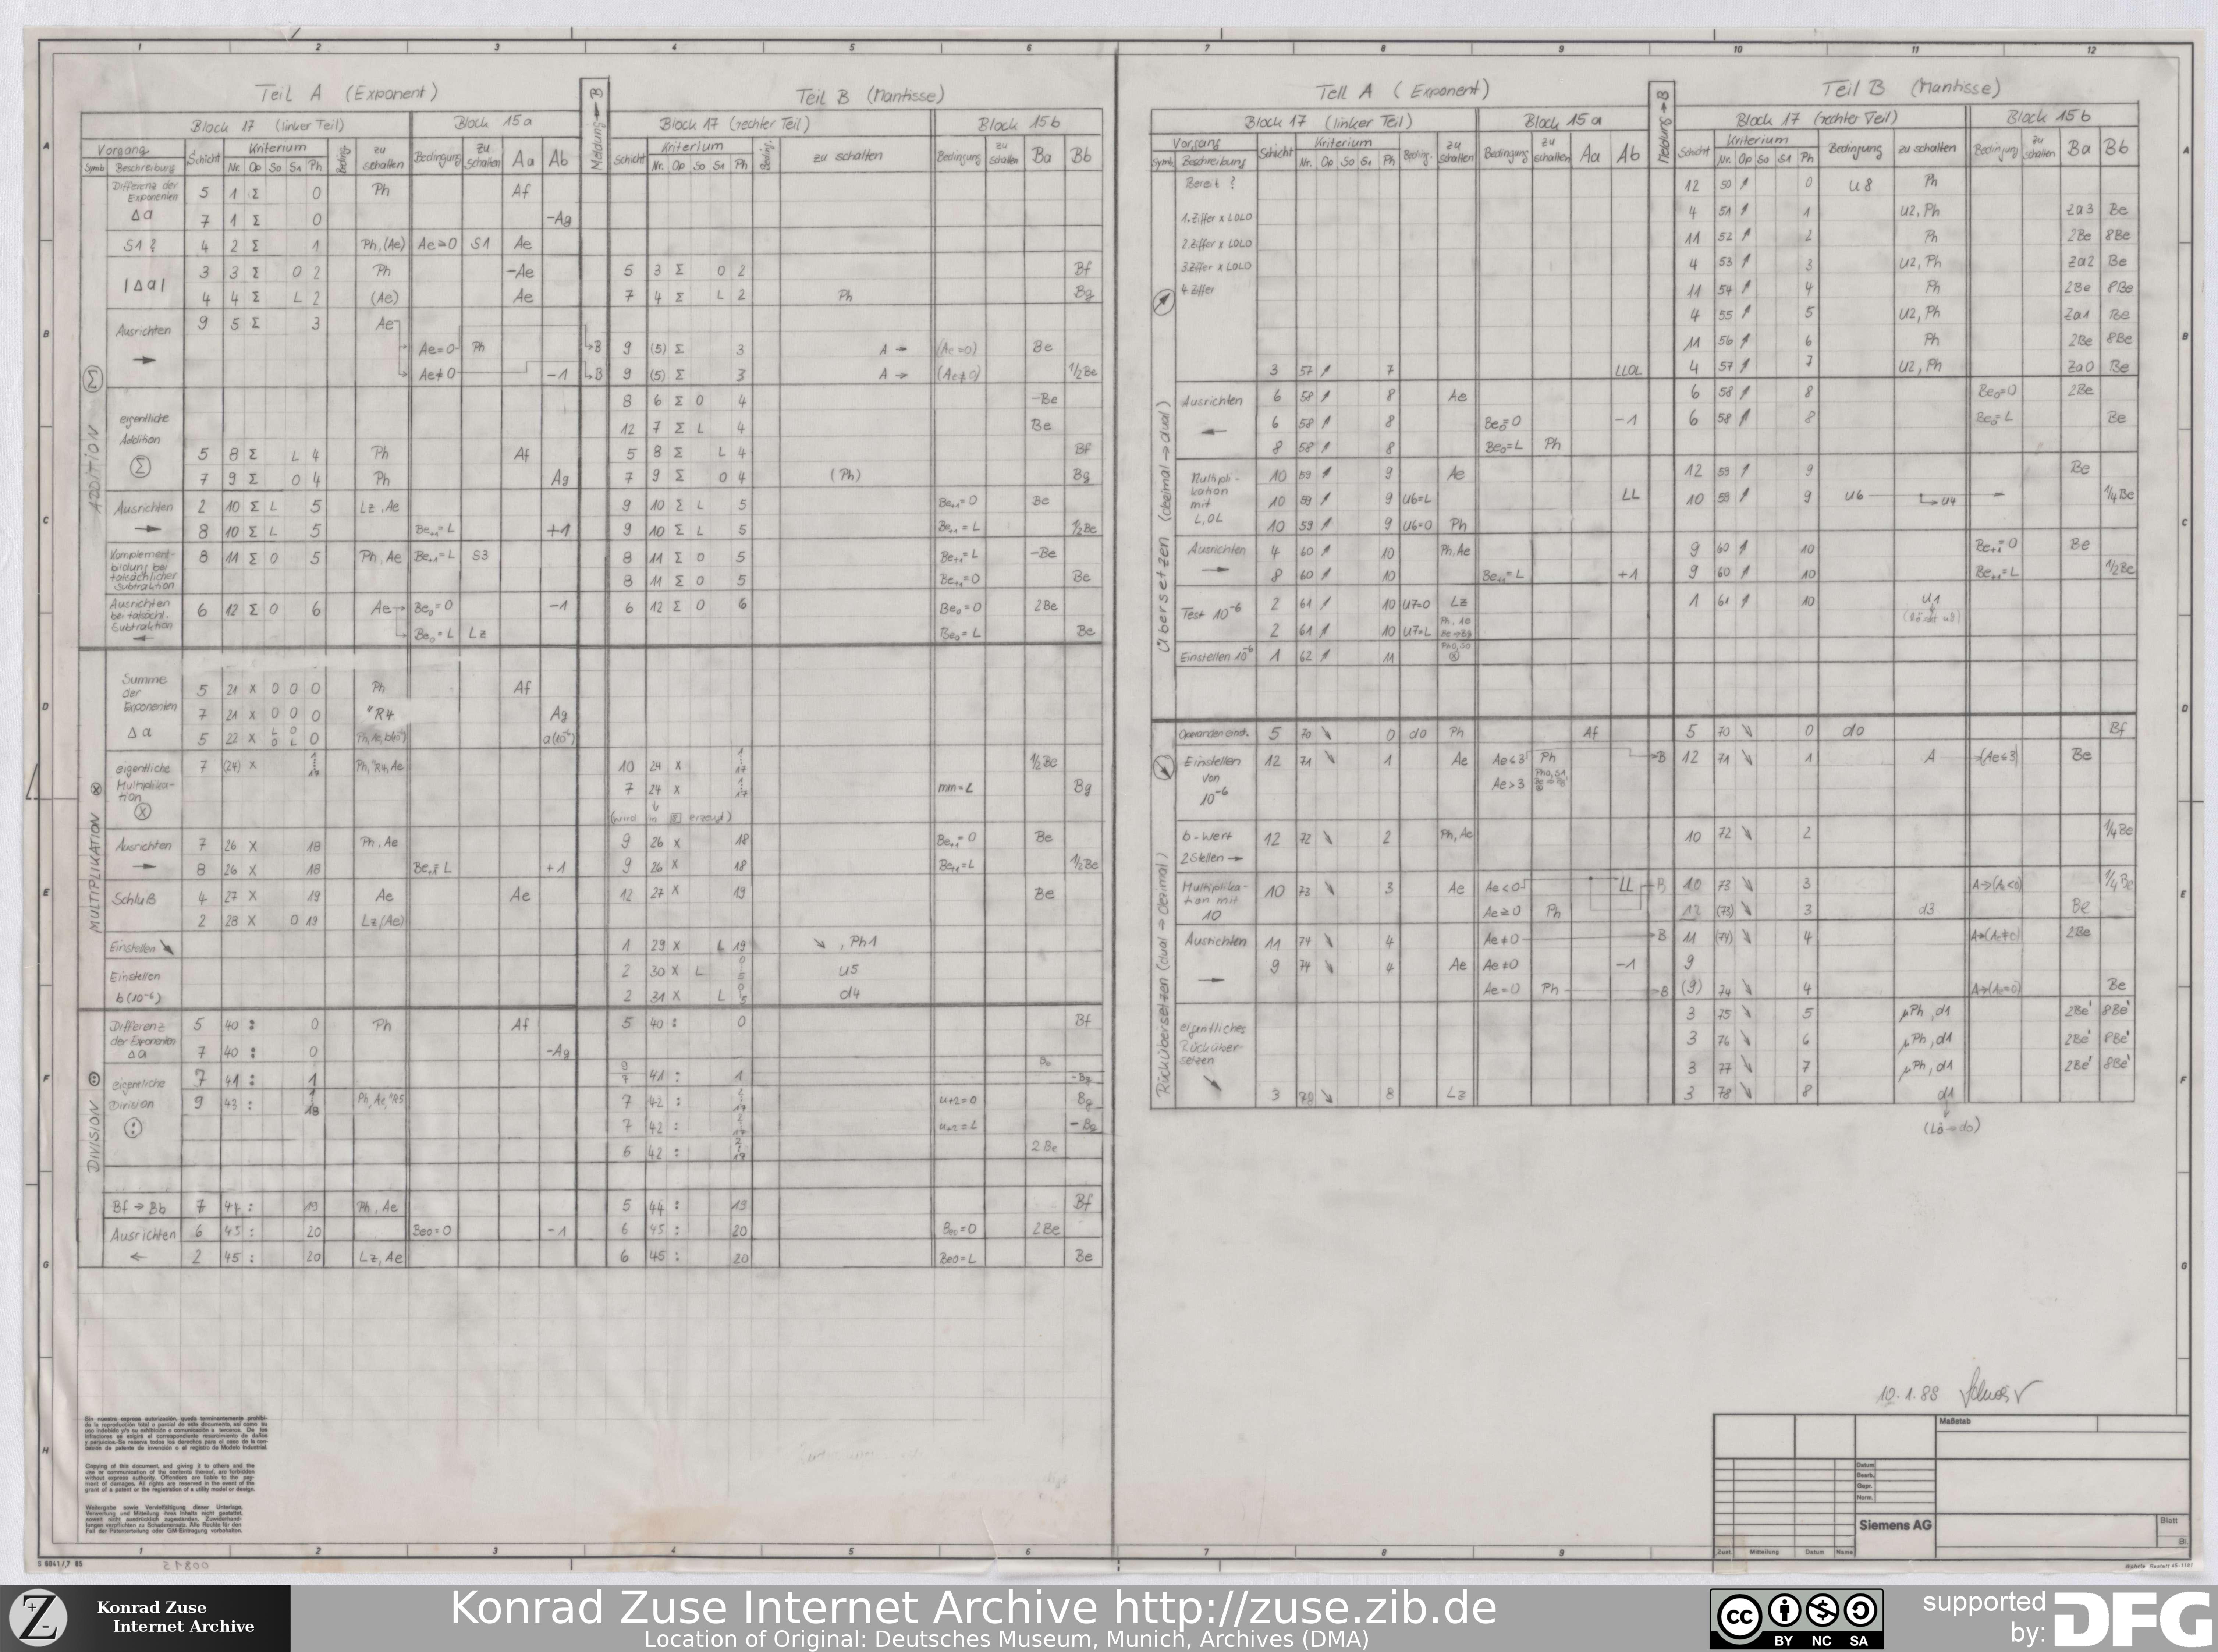 1 2 3 4 5 6 7 8 9 10 11 12
Teil A (Exponent)
Meldung → B
Teil B (Mantisse)
Block 17 (linker Teil) Block 15a Block 17 (rechter Teil) Block 15b
Vorgang Schicht Kriterium Bedingg. zu schalten Bedingung zu schalten Aa Ab Schicht Kriterium Beding. zu schalten Bedingung zu schalten Ba Bb
Symb Beschreibung Nr. Op So S1 Ph Nr. Op So S1 Ph
ADDITION Σ
Differenz der Exponenten 5 1 Σ 0 Ph Af
Δa 7 1 Σ 0 -Ag
S1? 4 2 Σ 1 Ph, (Ae) Ae≥0 S1 Ae
|Δa| 3 3 Σ 0 2 Ph -Ae 5 3 Σ 0 2 Bf
4 4 Σ L 2 (Ae) Ae 7 4 Σ L 2 Ph Bg
Ausrichten 9 5 Σ 3 Ae
→ Ae=0 Ph →B 9 (5) Σ 3 A → (Ae=0) Be
Ae≠0 -1 →B 9 (5) Σ 3 A → (Ae≠0) 1/2Be
8 6 Σ 0 4 -Be
eigentliche 12 7 Σ L 4 Be
Addition 5 8 Σ L 4 Ph Af 5 8 Σ L 4 Bf
Σ 7 9 Σ 0 4 Ph Ag 7 9 Σ 0 4 (Ph) Bg
Ausrichten 2 10 Σ L 5 Lz, Ae 9 10 Σ L 5 Be+1=0 Be
→ 8 10 Σ L 5 Be+1=L +1 9 10 Σ L 5 Be+1=L 1/2Be
Komplementbildung bei tatsächlicher Subtraktion 8 11 Σ 0 5 Ph, Ae Be+1=L S3 8 11 Σ 0 5 Be+1=L -Be
8 11 Σ 0 5 Be+1=0 Be
Ausrichten bei tatsächl. Subtraktion ← 6 12 Σ 0 6 Ae Be0=0 -1 6 12 Σ 0 6 Be0=0 2Be
Be0=L Lz Be0=L Be
MULTIPLIKATION ⊗
Summe der Exponenten 5 21 X 0 0 0 Ph Af
7 21 X 0 0 0 "R4 Ag
Δa 5 22 X L0 0L 0 a(10⁻⁶)
eigentliche Multiplikation ⊗ 7 (24) X 1 17 Ph, "R4, Ae 10 24 X 1 17 1/2Be
7 24 X 1 17 mm=L Bg
(wird in erzeugt)
Ausrichten 7 26 X 18 Ph, Ae 9 26 X 18 Be+1=0 Be
→ 8 26 X 18 Be+1=L +1 9 26 X 18 Be+1=L 1/2Be
Schluß 4 27 X 19 Ae Ae 12 27 X 19 Be
2 28 X 0 19 Lz(Ae)
Einstellen ↘ 1 29 X L 19 ↘, Ph1
Einstellen 2 30 X L 0 5 u5
b(10⁻⁶) 2 31 X L 0 5 d4
DIVISION
Differenz der Exponenten 5 40 : 0 Ph Af 5 40 : 0 Bf
Δa 7 40 : 0 -Ag
eigentliche 7 41 : 1 9 7 41 : 1 -Bg
Division 9 43 : 1 18 Ph, Ae, "R5 7 42 : 2 17 u+2=0 Bg
7 42 : 2 17 u+2=L -Bg
6 42 : 2 19 2Be
Bf → Bb 7 44 : 19 Ph, Ae 5 44 : 19 Bf
Ausrichten 6 45 : 20 Be0=0 -1 6 45 : 20 Be0=0 2Be
← 2 45 : 20 Lz, Ae 6 45 : 20 Be0=L Be
Teil A (Exponent)
Meldung → B
Teil B (Mantisse)
Block 17 (linker Teil) Block 15a Block 17 (rechter Teil) Block 15b
Vorgang Schicht Kriterium Beding. zu schalten Bedingung zu schalten Aa Ab Schicht Kriterium Bedingung zu schalten Bedingung zu schalten Ba Bb
Symb. Beschreibung Nr. Op So S1 Ph Nr. Op So S1 Ph
Übersetzen (dezimal → dual)
Bereit? 12 50 0 u8 Ph
1. Ziffer x LOLO 4 51 1 u2, Ph Za3 Be
2. Ziffer x LOLO 11 52 2 Ph 2Be 8Be
3. Ziffer x LOLO 4 53 3 u2, Ph Za2 Be
4. Ziffer 11 54 4 Ph 2Be 8Be
4 55 5 u2, Ph Za1 Be
11 56 6 Ph 2Be 8Be
3 57 7 LLOL 4 57 7 u2, Ph Za0 Be
Ausrichten 6 58 8 Ae 6 58 8 Be0=0 2Be
← 6 58 8 Be0=0 -1 6 58 8 Be0=L Be
8 58 8 Be0=L Ph
Multiplikation mit L,OL 10 59 9 Ae 12 59 9 Be
10 59 9 u6=L LL 10 59 9 u6 u4 - 1/4Be
10 59 9 u6=0 Ph
Ausrichten 4 60 10 Ph, Ae 9 60 10 Be+1=0 Be
→ 8 60 10 Be+1=L +1 9 60 10 Be+1=L 1/2Be
Test 10⁻⁶ 2 61 10 u7=0 Lz 1 61 10 u1
2 61 10 u7=L Ph, 10
Einstellen 10⁻⁶ 1 62 11 Ph0, S0 ⊗
Rückübersetzen (dual → dezimal)
5 70 ↘ 0 d0 Ph Af 5 70 ↘ 0 d0 Bf
Einstellen von 10⁻⁶ 12 71 ↘ 1 Ae Ae≤3 Ph →B 12 71 ↘ 1 A →(Ae≤3) Be
Ae>3
b-Wert 12 72 ↘ 2 Ph, Ae 10 72 ↘ 2 1/4Be
2 Stellen →
Multiplikation mit 10 10 73 ↘ 3 Ae Ae<0 LL B 10 73 ↘ 3 A→(Ae<0) 1/4Be
Ae≥0 Ph 12 (73) ↘ 3 d3 Be
Ausrichten 11 74 ↘ 4 Ae≠0 →B 11 (74) ↘ 4 A→(Ae≠0) 2Be
9 74 ↘ 4 Ae Ae≠0 -1 9
→ Ae=0 Ph →B (9) 74 4 A→(Ae=0) Be
eigentliches Rückübersetzen ↘ 3 75 ↘ 5 µPh, d1 2Be' 8Be'
3 76 ↘ 6 µPh, d1 2Be' 8Be'
3 77 ↘ 7 µPh, d1 2Be' 8Be'
3 78 ↘ 8 Lz 3 78 ↘ 8 d1
(Lö → d0)
10.1.88
Maßstab
Datum
Bearb.
Gepr.
Norm.
Siemens AG
Blatt
Bl.
Zust. Mitteilung Datum Name
Sin nuestra expresa autorización, queda terminantemente prohibida la reproducción total o parcial de este documento, así como su uso indebido y/o su exhibición o comunicación a terceros. De los infractores se exigirá el correspondiente resarcimiento de daños y perjuicios. Se reserva todos los derechos para el caso de la concesión de patente de invención o el registro de Modelo Industrial.
Copying of this document, and giving it to others and the use or communication of the contents thereof, are forbidden without express authority. Offenders are liable to the payment of damages. All rights are reserved in the event of the grant of a patent or the registration of a utility model or design.
Weitergabe sowie Vervielfältigung dieser Unterlage, Verwertung und Mitteilung ihres Inhalts nicht gestattet, soweit nicht ausdrücklich zugestanden. Zuwiderhandlungen verpflichten zu Schadenersatz. Alle Rechte für den Fall der Patenterteilung oder GM-Eintragung vorbehalten.
1 2 3 4 5 6 7 8 9
Konrad Zuse
Internet Archive
Konrad Zuse Internet Archive http://zuse.zib.de
Location of Original: Deutsches Museum, Munich, Archives (DMA)
cc BY NC SA
supported by: DFG